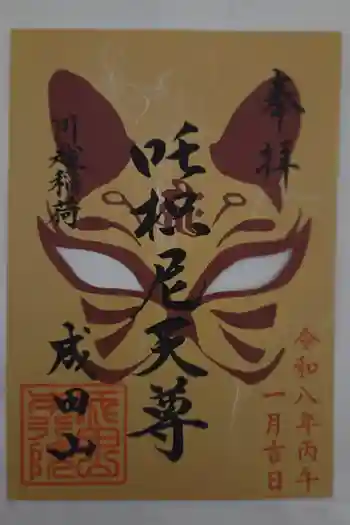 奉拝
令和八年丙午
一月吉日
吒枳尼天尊
稲荷
成田山